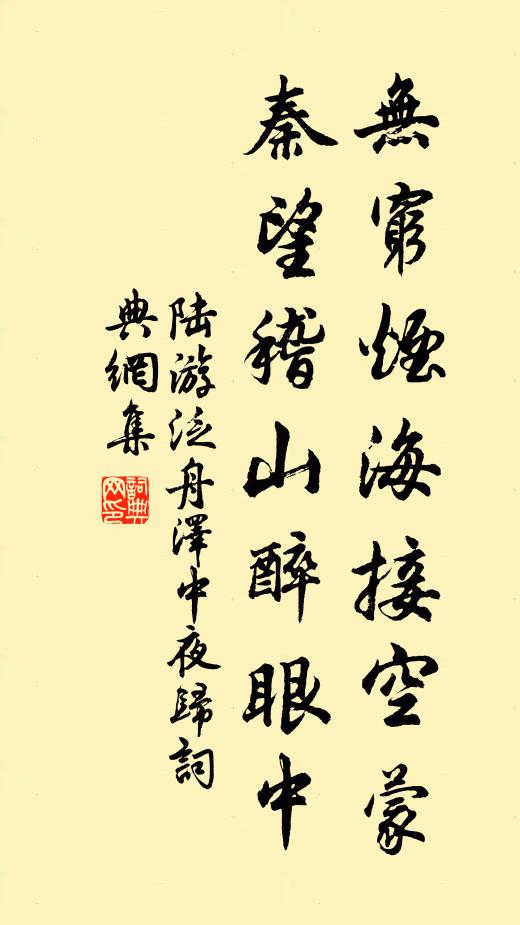 無窮煙海接空蒙
秦望稽山醉眼中
陆游泛舟澤中夜歸詞
典網集
詞典網印